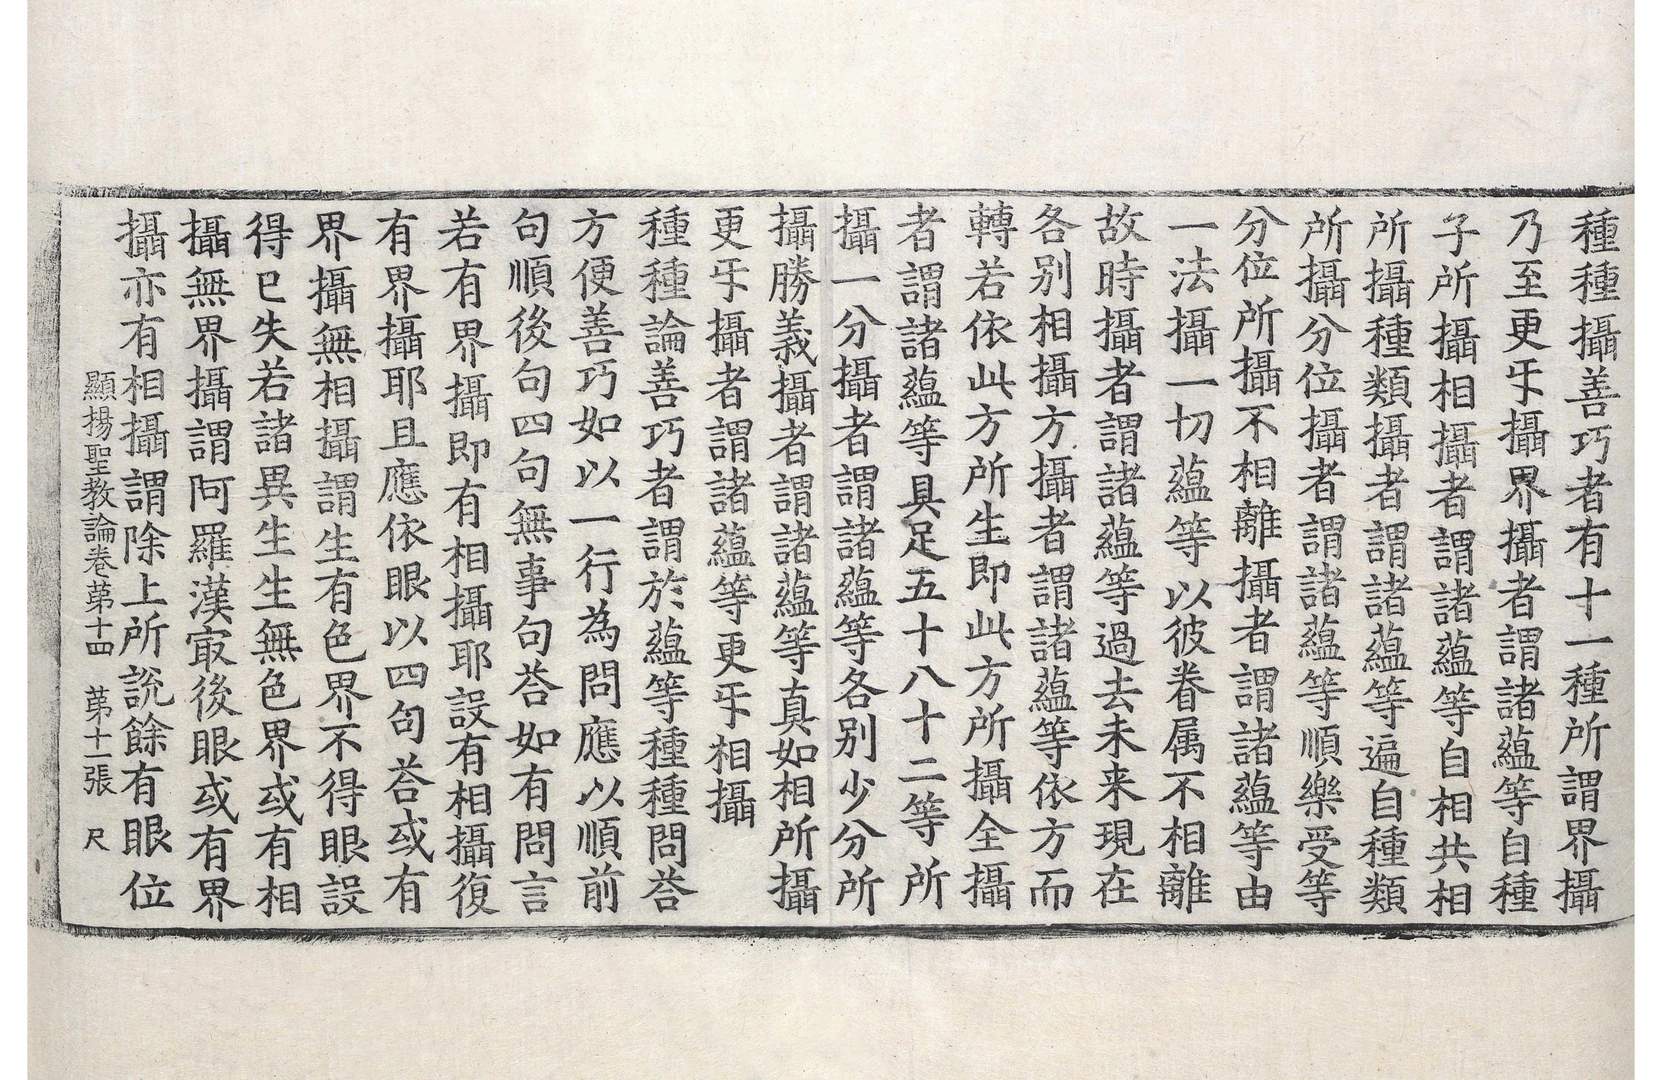 種種攝善巧者有十一種所謂界攝
乃至更㸦攝界攝者謂諸蘊等自種
子所攝相攝者謂諸蘊等自相共相
所攝種類攝者謂諸蘊等遍自種類
所攝分位攝者謂諸蘊等順樂受等
分位所攝不相離攝者謂諸蘊等由
一法攝一切蘊等以彼眷属不相離
故時攝者謂諸蘊等過去未来現在
各别相攝方攝者謂諸蘊等依方而
轉若依此方所生即此方所攝全攝
者謂諸蘊等具足五十八十二等所
攝一分攝者謂諸蘊等各别少分所
攝勝義攝者謂諸蘊等真如相所攝
更㸦攝者謂諸蘊等更㸦相攝
種種論善巧者謂於蘊等種種問荅
方便善巧如以一行為問應以順前
句順後句四句無事句荅如有問言
若有界攝即有相攝耶設有相攝復
有界攝耶且應依眼以四句荅或有
界攝無相攝謂生有色界不得眼設
得已失若諸異生生無色界或有相
攝無界攝謂阿羅漢㝡後眼或有界
攝亦有相攝謂除上所說餘有眼位
顯揚聖教論卷苐十四 苐十一張 尺